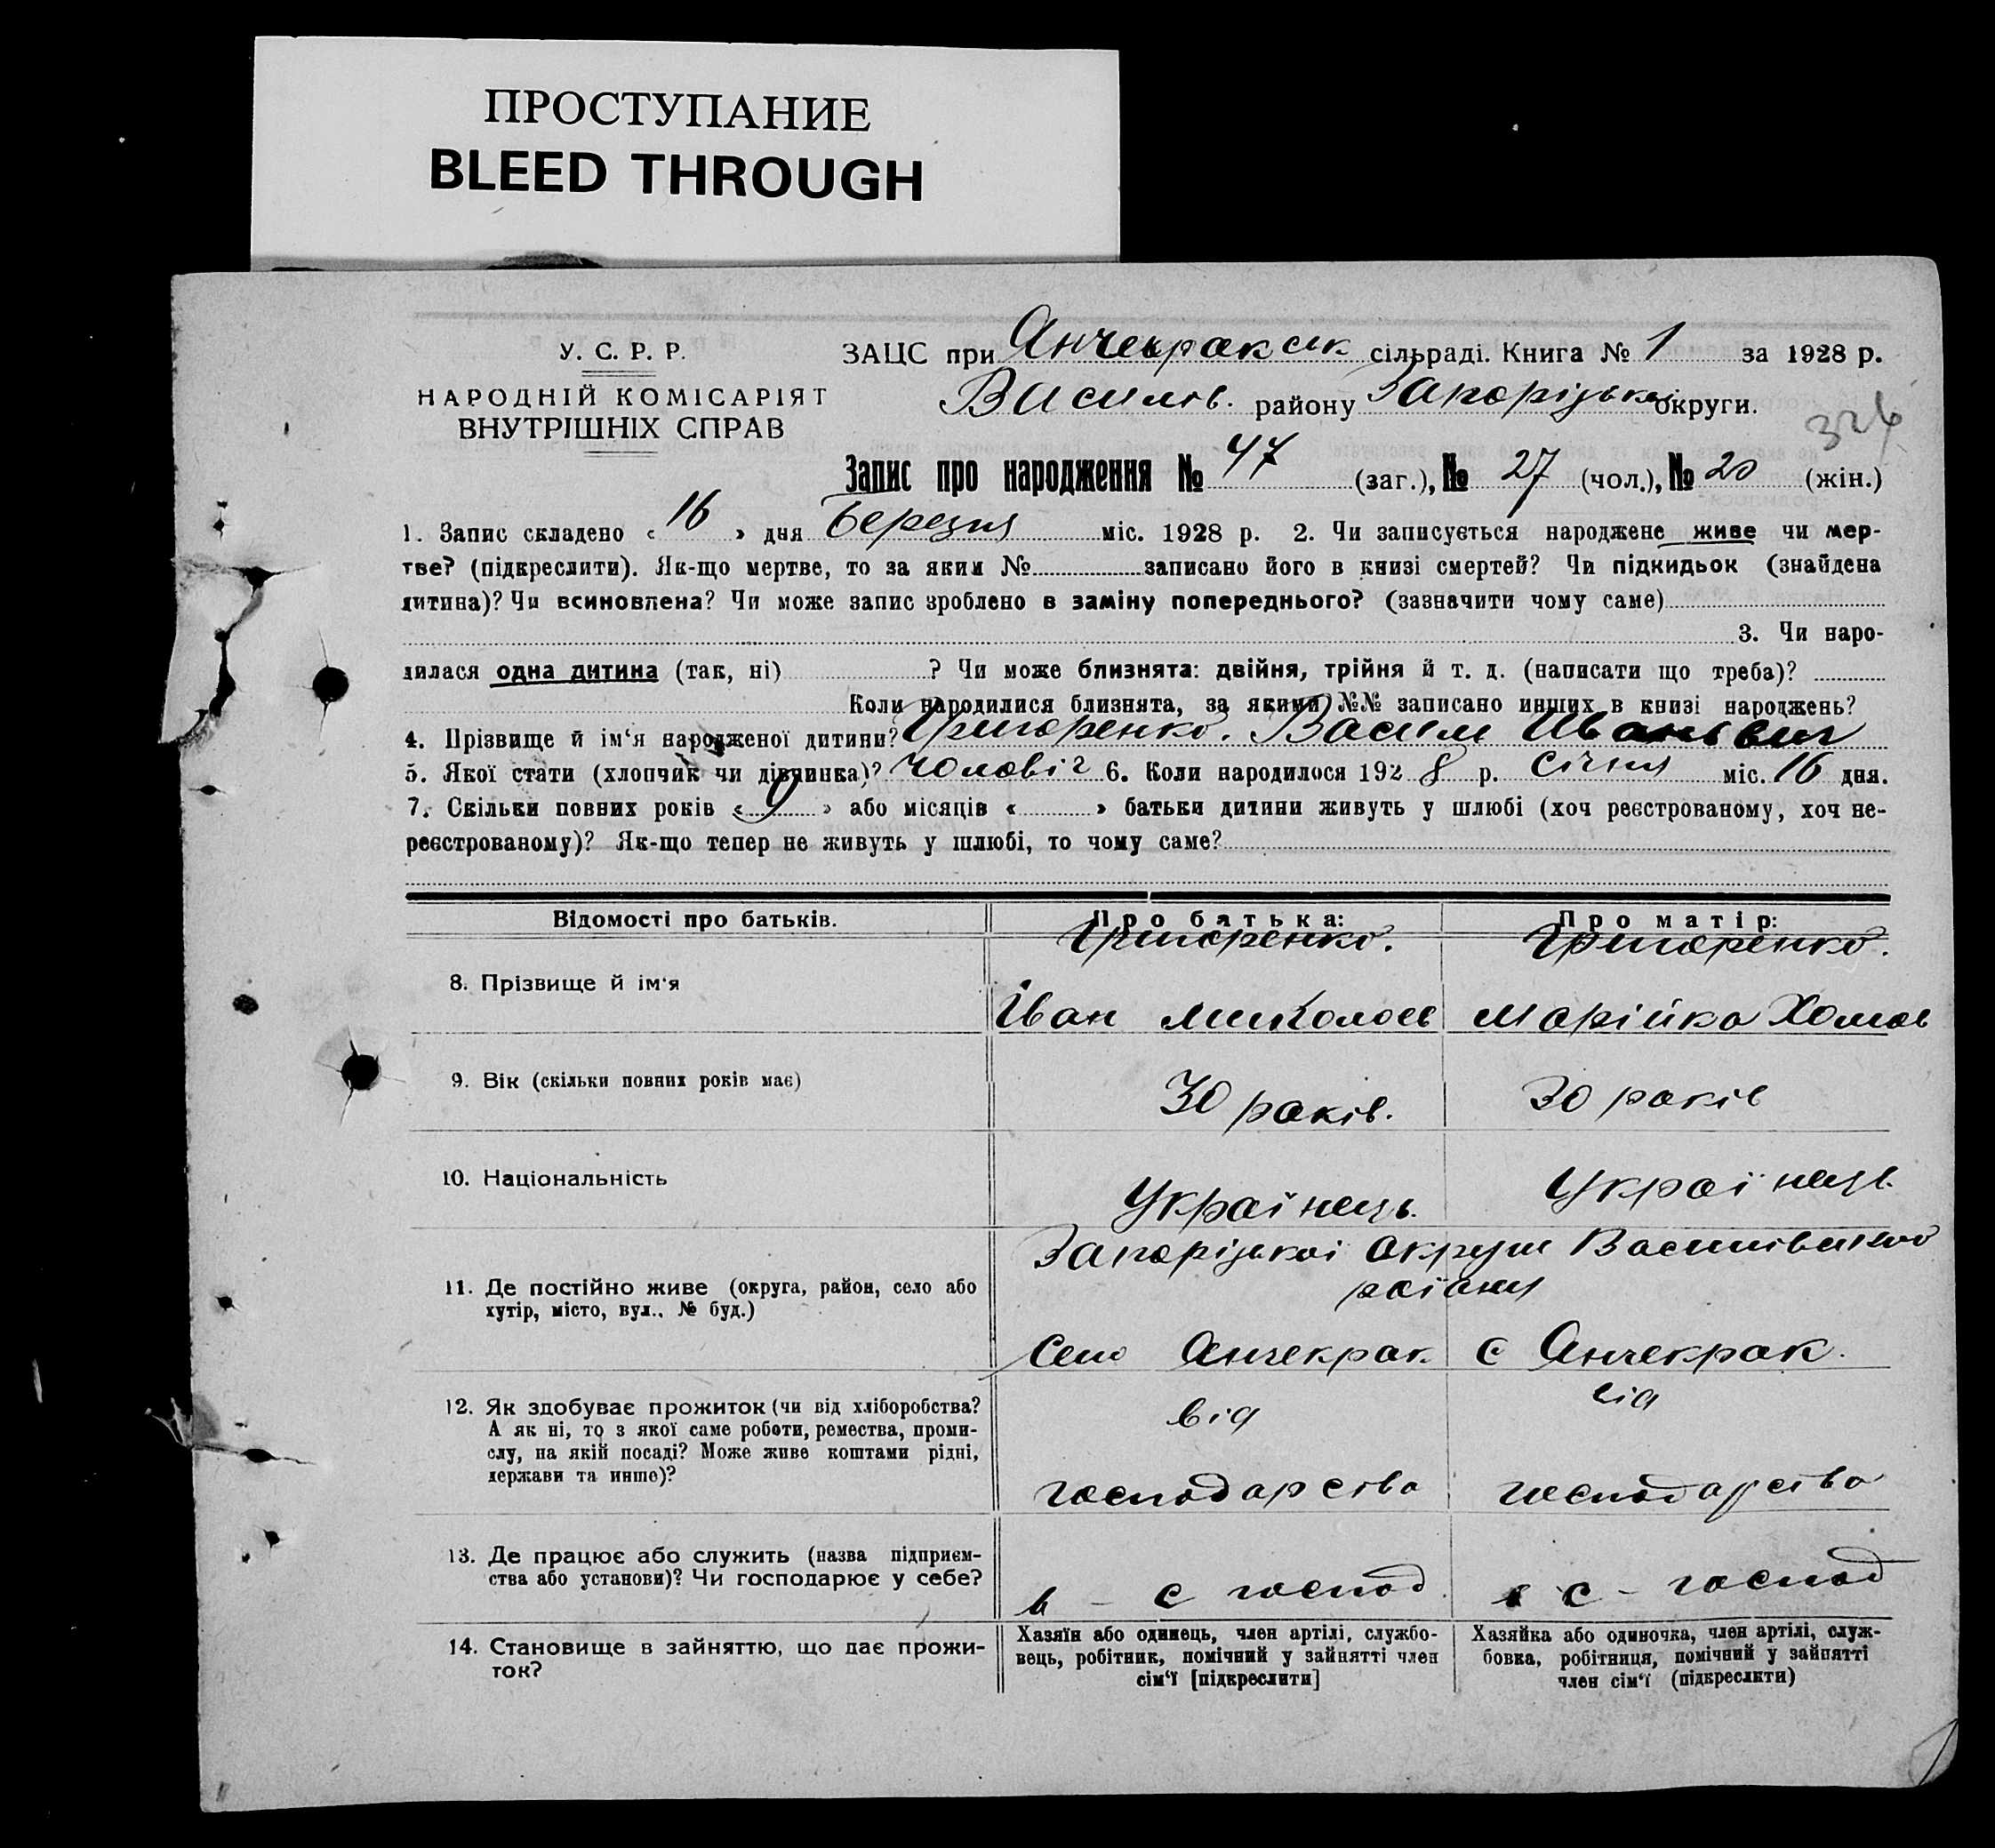 ПРОСТУПАНИЕ
BLEED THROUGH
У. С. Р. Р.
НАРОДНІЙ КОМІСАРІЯТ
ВНУТРІШНІХ СПРАВ
ЗАЦС при Янчекракськ сільраді. Книга № 1 за 1928 р.
Василів. району Запорізької округи.
324
Запис про народження № 47 (заг.), № 27 (чол.), № 20 (жін.)
1. Запис складено « 16 » дня Березня міс. 1928 р. 2. Чи записується народжене живе чи мер-
тве? (підкреслити). Як-що мертве, то за яким № записано його в книзі смертей? Чи підкидьок (знайдена
дитина)? Чи всиновлена? Чи може запис зроблено в заміну попереднього? (зазначити чому саме)
3. Чи наро-
дилася одна дитина (так, ні) ? Чи може близнята: двійня, трійня й т. д. (написати що треба)?
Коли народилися близнята, за якими №№ записано инших в книзі народжень?
4. Прізвище й ім‘я народженої дитини? Григоренко. Васил Иванович
5. Якої стати (хлопчик чи дівчинка)? чоловіч 6. Коли народилося 1928 р. Січня міс. 16 дня.
7. Скільки повних років « 9 » або місяців « » батьки дитини живуть у шлюбі (хоч реєстрованому, хоч не-
реєстрованому)? Як-що тепер не живуть у шлюбі, то чому саме?
Відомості про батьків. Про батька: Про матір:
Григоренко. Григоренко.
8. Прізвище й ім‘я
Іван Миколаєв Марійка Хомов
9. Вік (скільки повних років має) 30 раків. 30 раків
10. Національність Українець. Українець.
Запорізької Округи Василівського
району
11. Де постійно живе (округа, район, село або
хутір, місто, вул., № буд.)
Село Янчекрак с Янчекрак.
12. Як здобуває прожиток (чи від хліборобства?
А як ні, то з якої саме роботи, ремества, проми-
слу, на якій посаді? Може живе коштами рідні,
держави та инше)?
від від
господарства господарства
13. Де працює або служить (назва підприєм-
ства або установи)? Чи господарює у себе?
в - с господ. в с - господ
14. Становище в зайняттю, що дає прожи-
ток?
Хазяїн або одинець, член артілі, службо-
вець, робітник, помічний у зайнятті член
сім‘ї [підкреслити]
Хазяйка або одиночка, член артілі, служ-
бовка, робітниця, помічний у зайнятті
член сім‘ї (підкреслити)